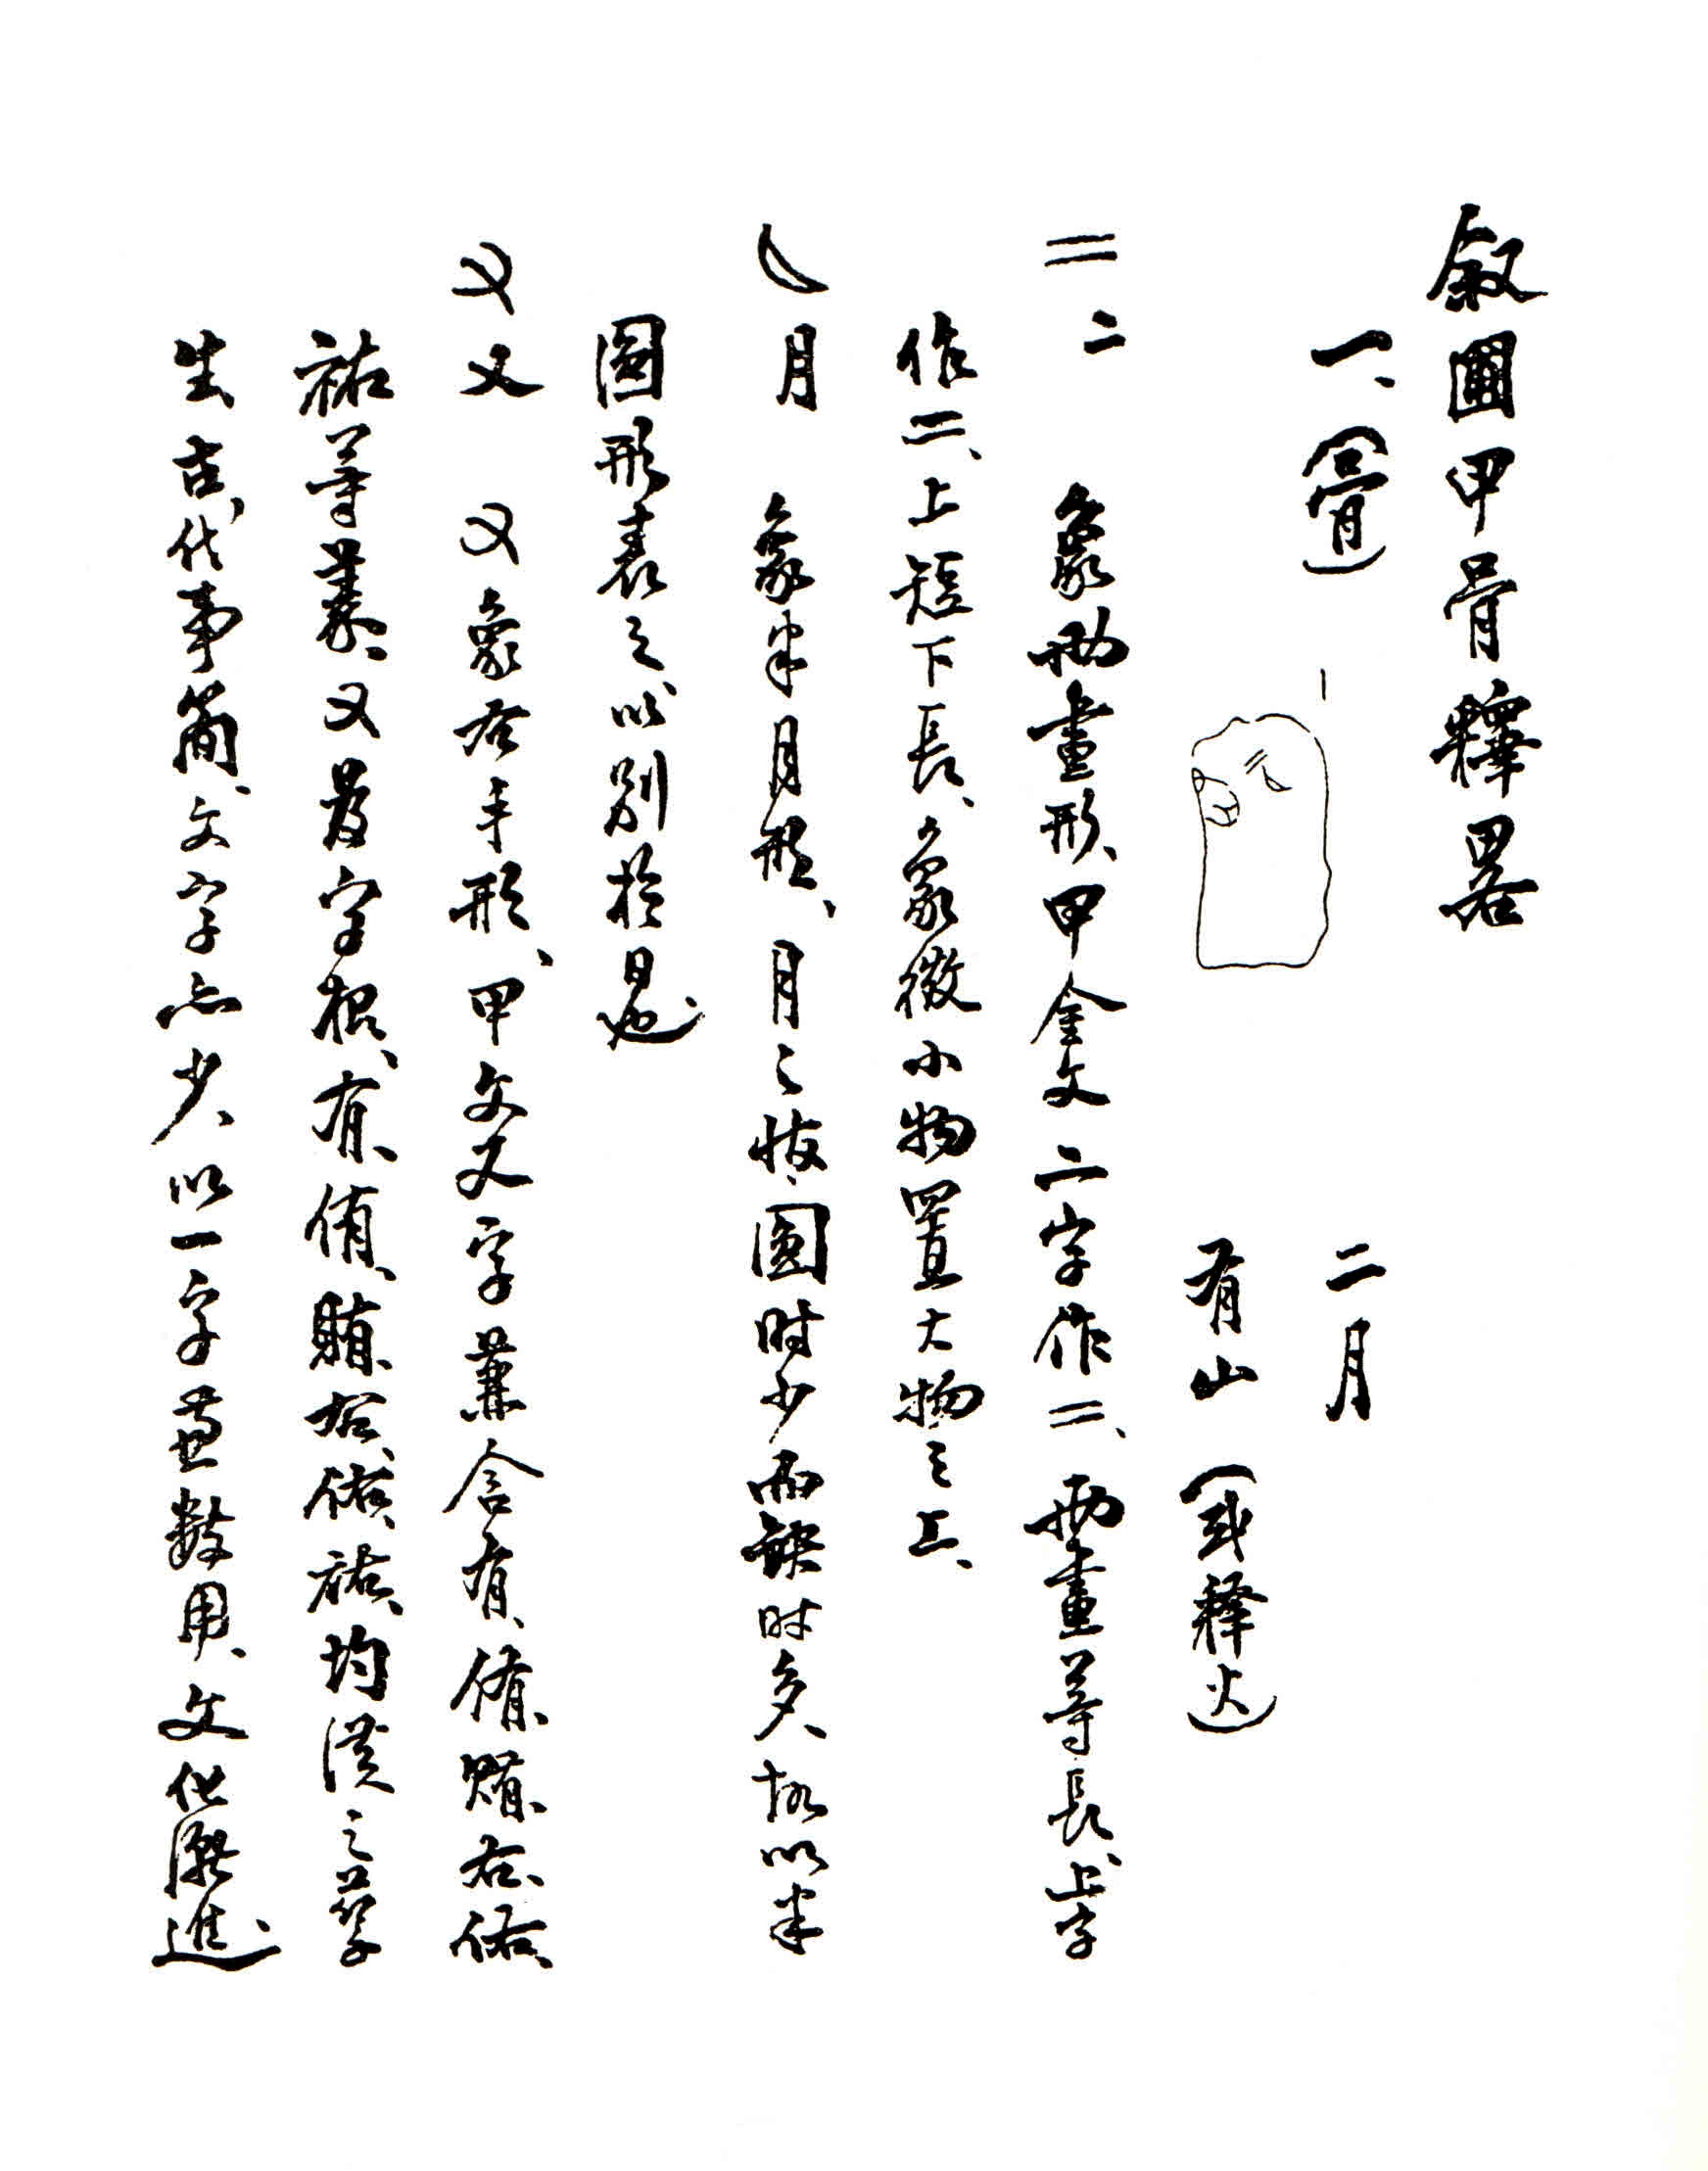 叙圃甲骨釋畧
一、（骨）
二月
有山（或释火）
二 二 象兩畫形、甲金文二字作二、兩畫等長、上字
作二、上短下長、象微小物置大物之上、
月 象半月形、月之恒、圆时少而缺时多、故以半
圆形表之、以别於日也
又 又 又象右手形、甲文又字兼含有、侑、賄、右、佑、
祐等義、又是字根、有、侑、賄、右、佑、祐、均後之孳
生、古代事简、文字亦少、以一字兼數用、文化漸進、